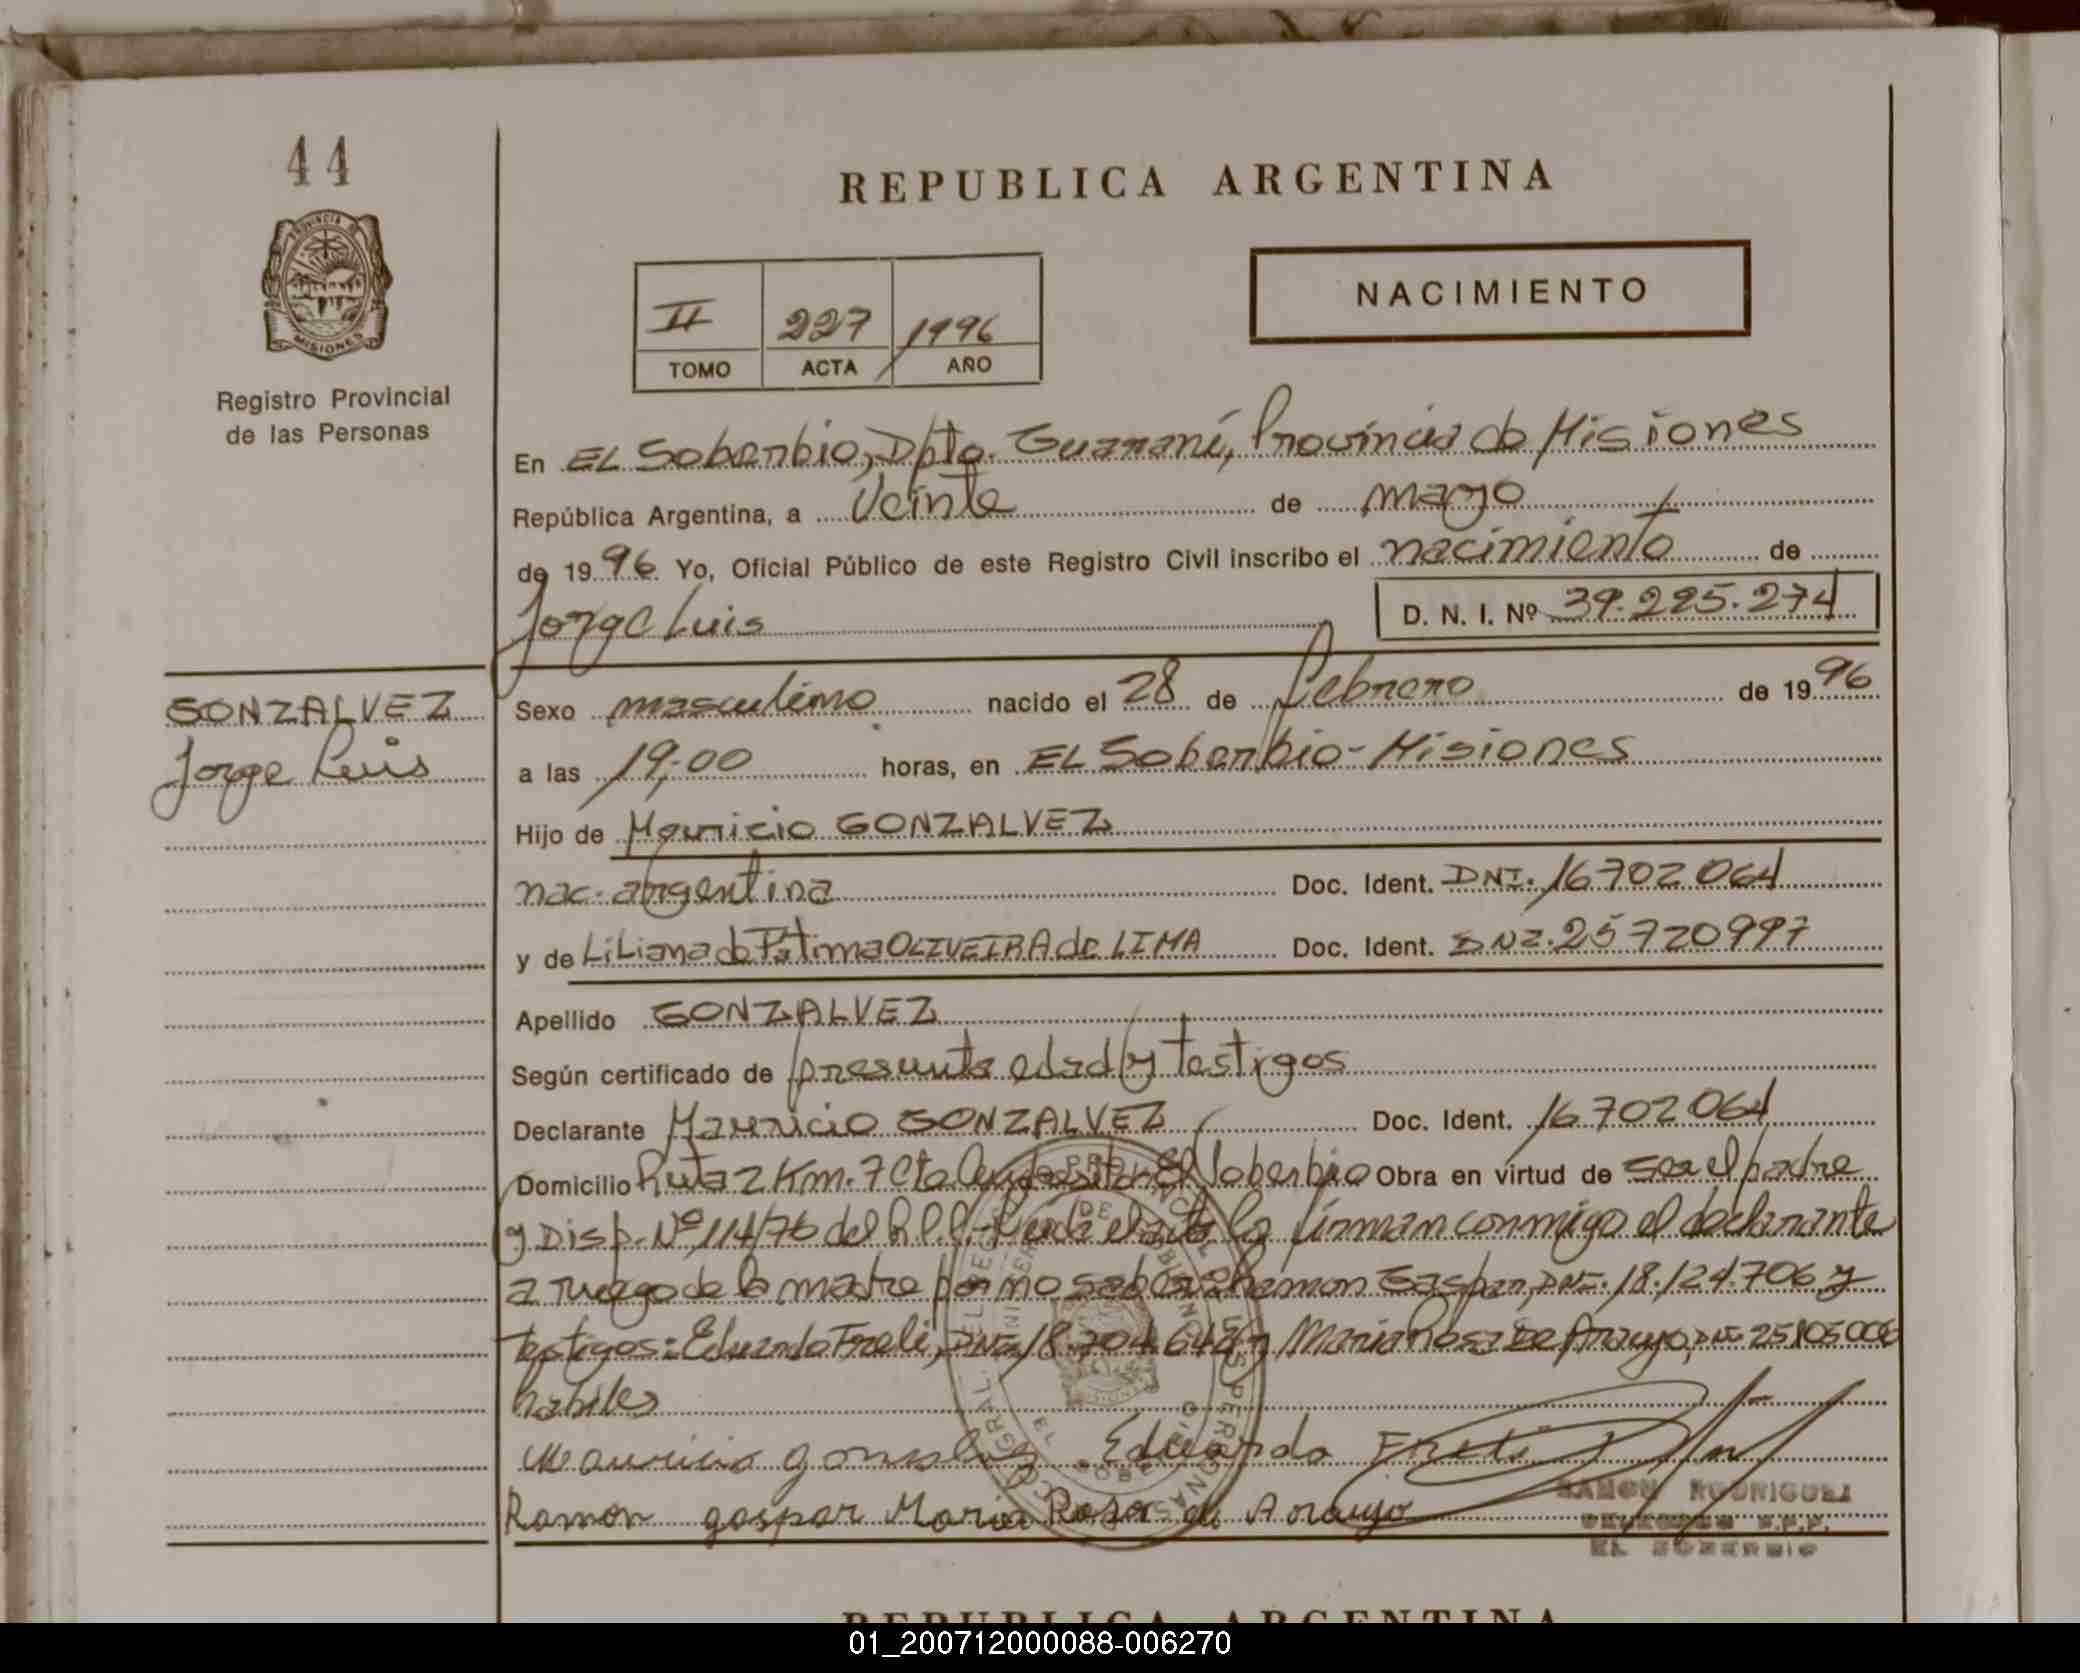 44
REPUBLICA ARGENTINA
PROVINCIA DE
MISIONES
Registro Provincial
de las Personas
NACIMIENTO
II 227 1996
TOMO ACTA AÑO
En EL Soberbio, Dpto. Guaraní, Provincia de Misiones
República Argentina, a Veinte de mayo
de 1996 Yo, Oficial Público de este Registro Civil inscribo el nacimiento de
Jorge Luis D. N. I. Nº 39.225.274
GONZALVEZ
Jorge Luis
Sexo masculino nacido el 28 de febrero de 1996
a las 19,00 horas, en EL Soberbio - Misiones
Hijo de Mauricio GONZALVEZ
nac. argentina Doc. Ident. DNI. 16702064
y de Liliana de Fatima OLIVEIRA de LIMA Doc. Ident. DNI. 25720997
Apellido GONZALVEZ
Según certificado de presunta edad y testigos
Declarante Mauricio GONZALVEZ Doc. Ident. 16702064
Domicilio Ruta 2 Km. 7 El Soberbio Obra en virtud de ser el padre
y Disp. Nº 114/76 del R.P.P. Leida el acta la firman conmigo el declarante
a ruego de la madre por no saber Ramon Gaspar, DNI. 18.124.706 y
testigos: Eduardo Freli, DNI 18.704.642 y Maria Rosa De Araujo, DNI 25105006
habiles
Mauricio gonzalvez Eduardo Freli
Ramon gaspar Maria Rosa de Araujo
RAMON RODRIGUEZ
DELEGADO R.P.P.
EL SOBERBIO
REPUBLICA ARGENTINA
01_200712000088-006270